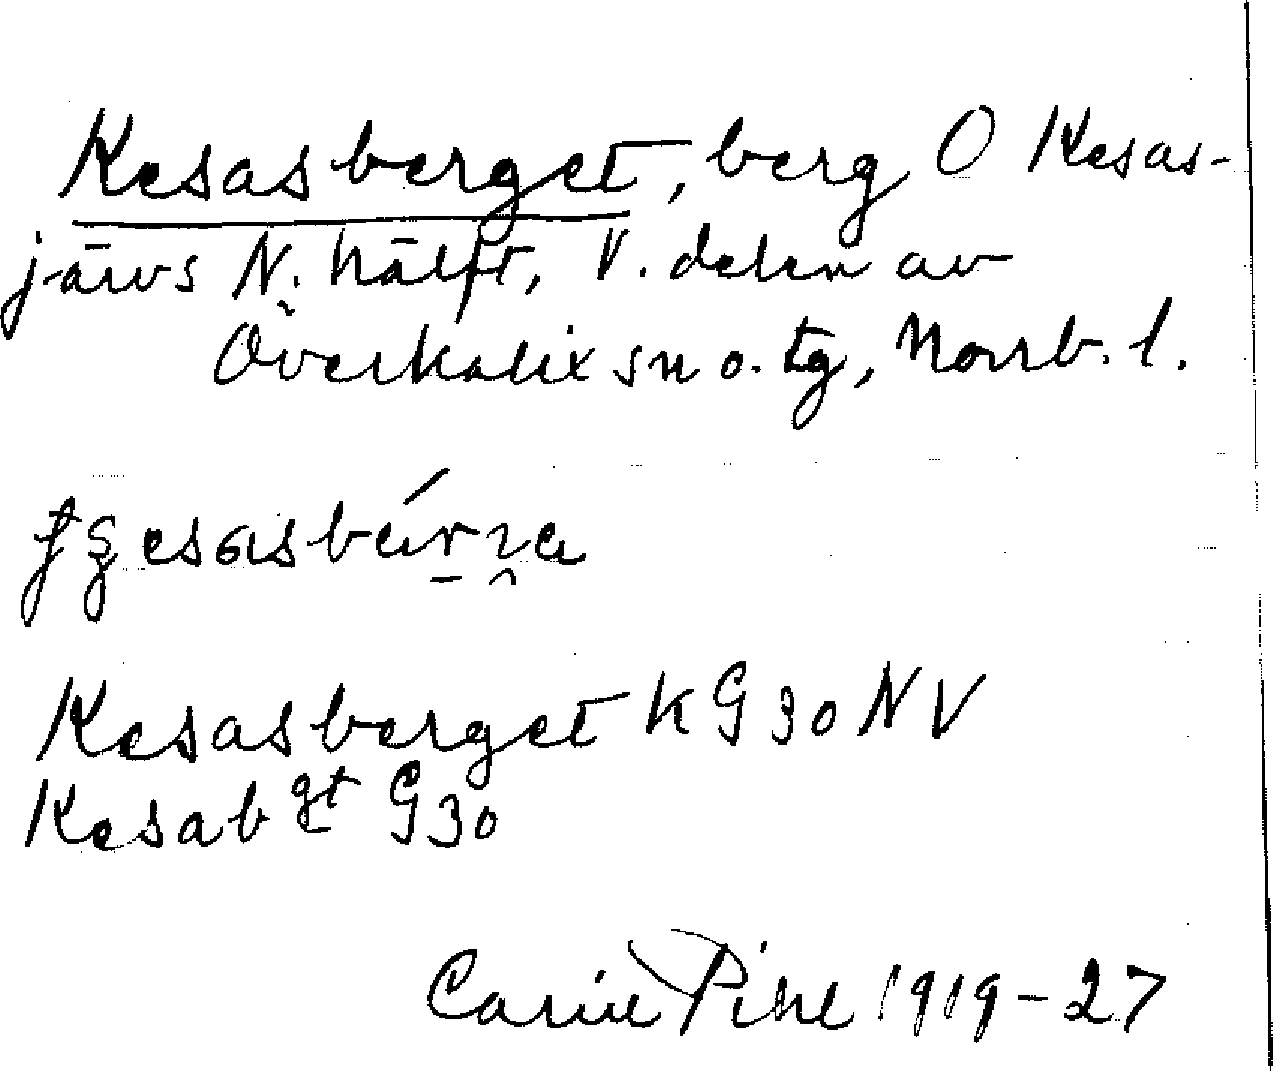 Kesasberget, berg O Kesas-
järvs N. hälft, V. delen av
Överkalix sn o. tg, Norrb. l.
Kesasberget K G 30 NV
Kesabgt G 30
Carin Pihl 1919-27